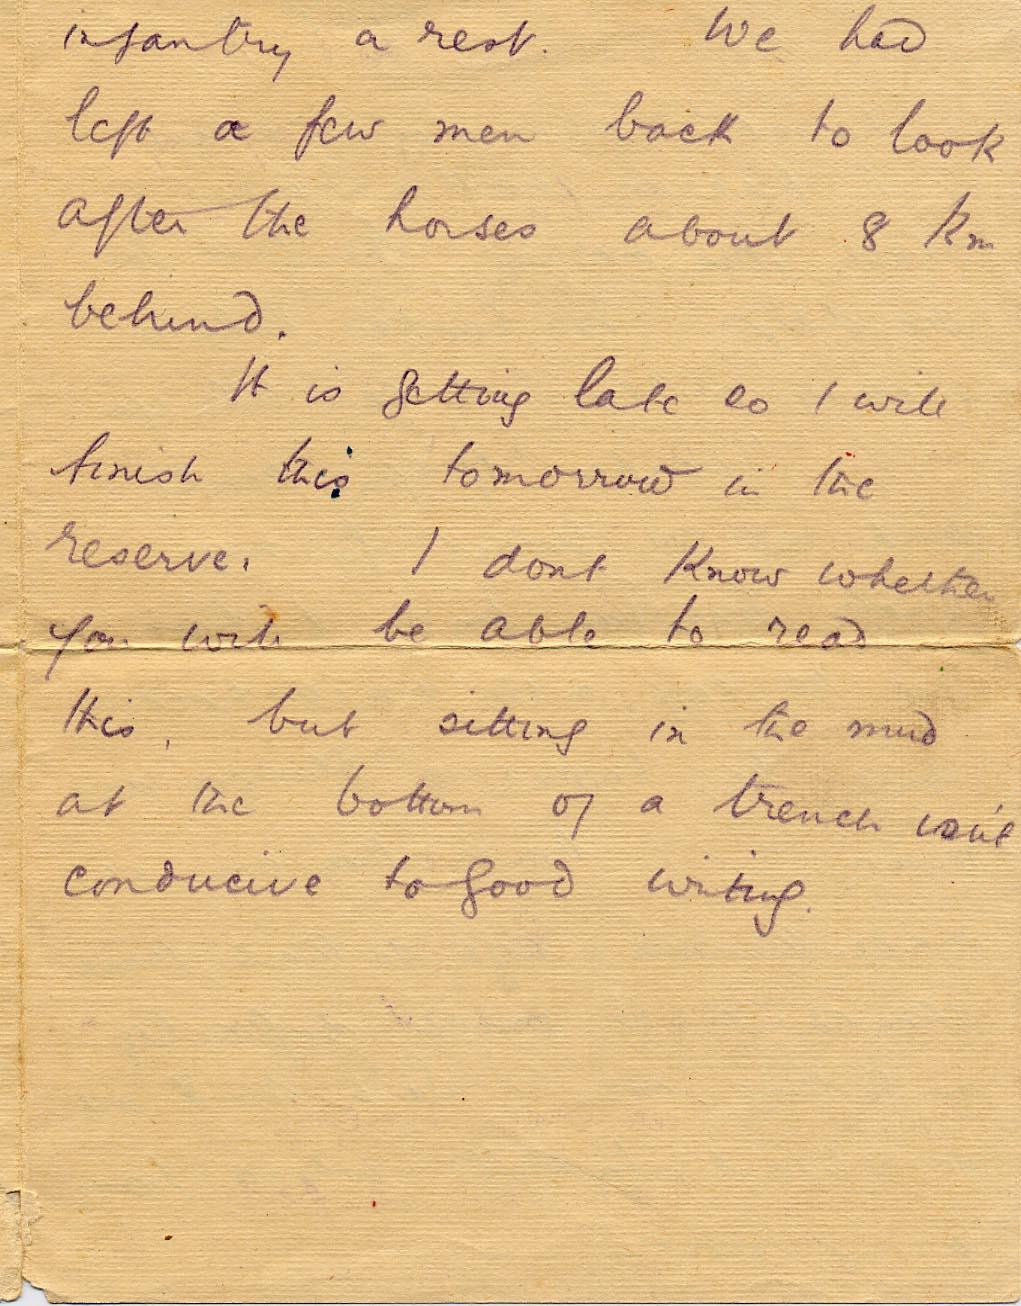 infantry a rest. We had
left a few men back to look
after the horses about 8 km
behind.
It is getting late so I will
finish this tomorrow in the
reserve. I dont know whether
you will be able to read
this, but sitting in the mud
at the bottom of a trench isn't
conducive to good writing.